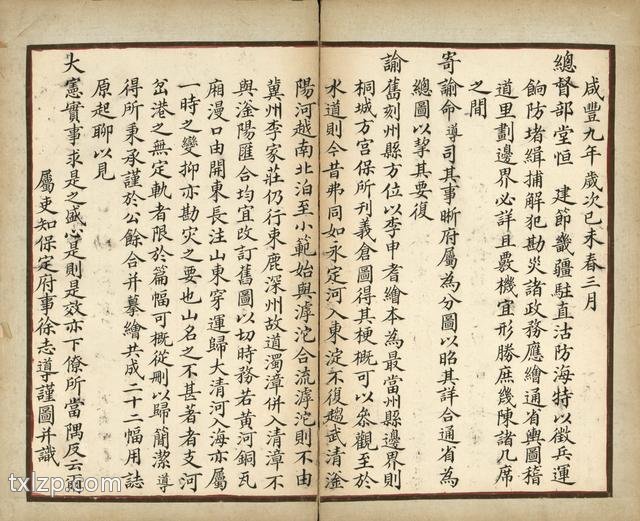 咸豐九年歲次己未春三月
總督部堂恒 建節畿疆駐直沽防海特以徵兵運
餉防堵緝捕解犯勘災諸政務應繪通省輿圖稽
道里劃邊界必詳且覈機宜形勝庶幾陳諸几席
之間
寄諭命導司其事晰府屬為分圖以昭其詳合通省為
總圖以挈其要復
諭舊刻州縣方位以李申耆繪本為最當州縣邊界則
桐城方宮保所刊義倉圖得其梗概可以叅觀至於
水道則今昔弗同如永定河入東淀不復趨武清滏
陽河越南北泊至小範始與滹沱合流滹沱則不由
冀州李家莊仍行束鹿深州故道濁漳併入清漳不
與滏陽匯合均宜改訂舊圖以切時務若黃河銅瓦
廂漫口由開東長注山東穿運歸大清河入海亦屬
一時之變抑亦勘灾之要也山名之不甚著者支河
岔港之無定軌者限於篇幅可概從刪以歸簡潔導
得所秉承謹於公餘合并摹繪共成二十二幅用誌
原起聊以見
大憲實事求是之盛心是則是效亦下僚所當隅反云爾
屬吏知保定府事徐志導謹圖并識
txlzp.com